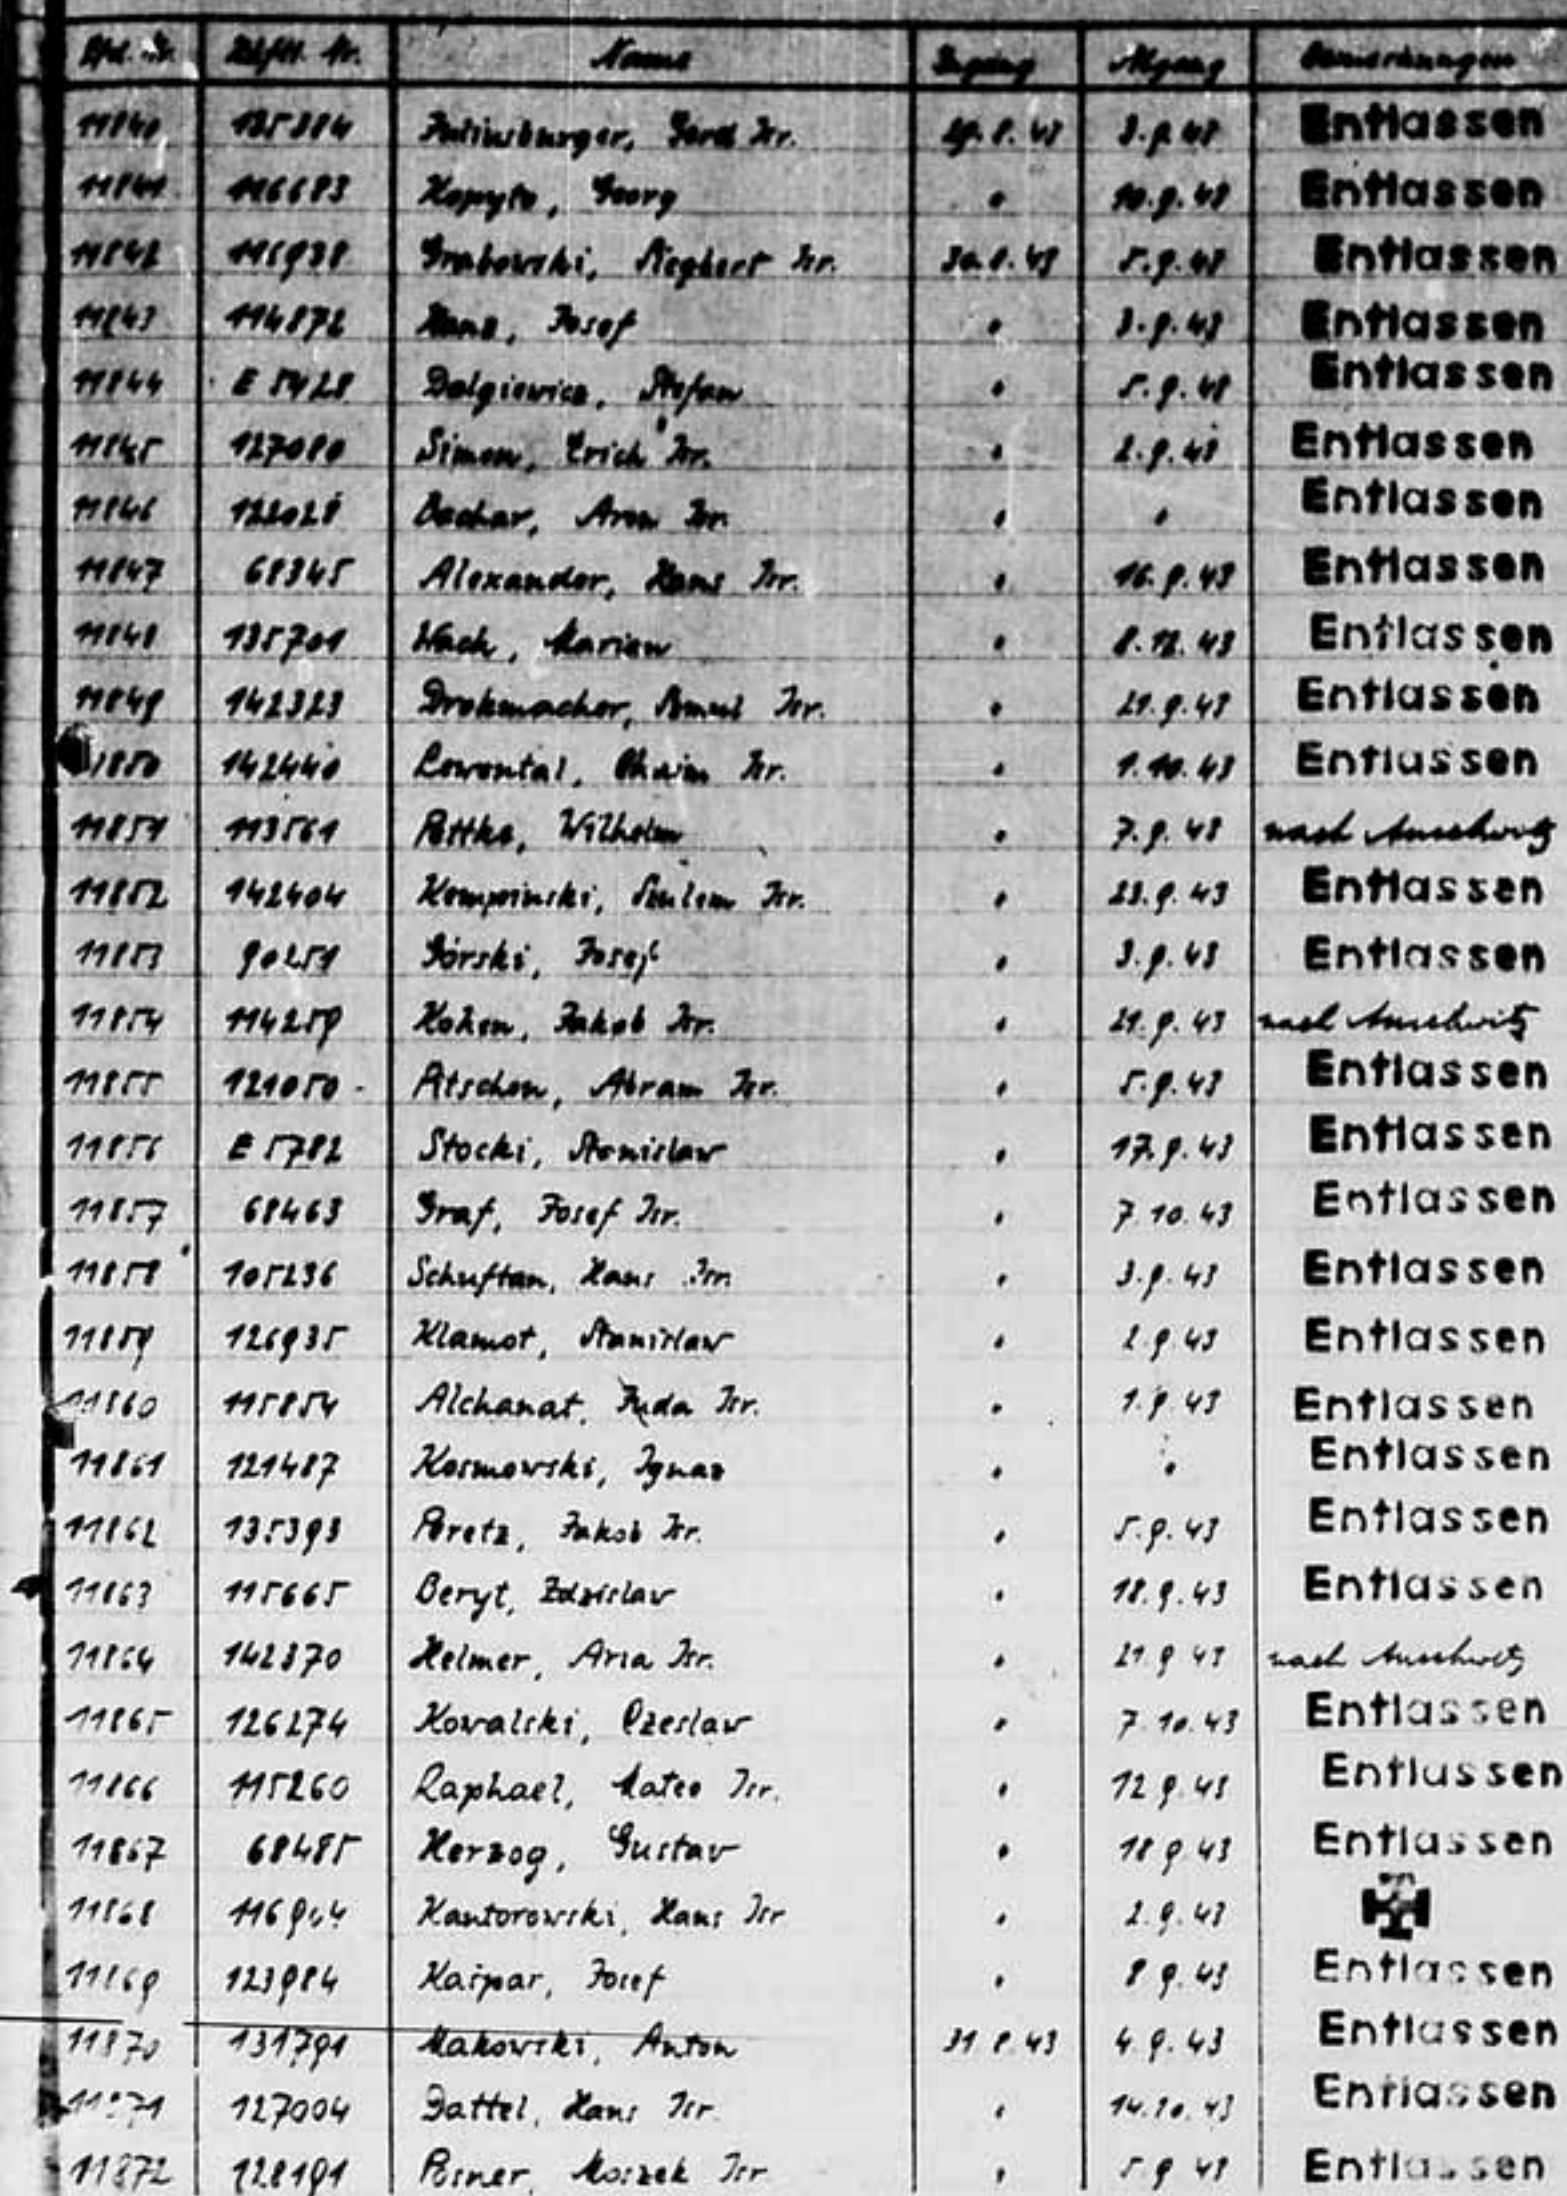 Lfd. Nr. Häftl. Nr. Name Zugang Abgang Bemerkungen
11840 135384 Gerd Isr. 29.8.43 3.9.43 Entlassen
11841 116683 Kopyto, Georg " 10.9.43 Entlassen
11842 116938 Grabowski, Siegbert Isr. 30.8.43 5.9.43 Entlassen
11843 114872 Josef " 3.9.43 Entlassen
11844 E 5428 Dolgiewicz, Stefan " 5.9.43 Entlassen
11845 127080 Simon, Erich Isr. " 2.9.43 Entlassen
11846 122028 Bachar, Aron Isr. " " Entlassen
11847 68345 Alexander, Hans Isr. " 16.9.43 Entlassen
11848 135701 Wach, Marian " 8.12.43 Entlassen
11849 142323 Isr. " 21.9.43 Entlassen
11850 142440 Lowental, Chaim Isr. " 1.10.43 Entlassen
11851 113561 Pottka, Wilhelm " 7.9.43 nach Auschwitz
11852 142404 Kempinski, Szulem Isr. " 23.9.43 Entlassen
11853 90251 Górski, Josef " 3.9.43 Entlassen
11854 114259 Kohen, Jakob Isr. " 21.9.43 nach Auschwitz
11855 121050 Pitschon, Abram Isr. " 5.9.43 Entlassen
11856 E 5782 Stocki, Stanislaw " 17.9.43 Entlassen
11857 68463 Graf, Josef Isr. " 7.10.43 Entlassen
11858 105236 Schuftan, Hans Isr. " 3.9.43 Entlassen
11859 126935 Klamot, Stanislaw " 2.9.43 Entlassen
11860 115854 Alchanat, Juda Isr. " 1.9.43 Entlassen
11861 121487 Kosmowski, Ignaz " " Entlassen
11862 135393 Peretz, Jakob Isr. " 5.9.43 Entlassen
11863 115665 Beryt, Zdzislav " 18.9.43 Entlassen
11864 142370 Helmer, Aria Isr. " 21.9.43 nach Auschwitz
11865 126274 Kowalski, Czeslaw " 7.10.43 Entlassen
11866 115260 Raphael, Mateo Isr. " 12.9.43 Entlassen
11867 68485 Herzog, Gustav " 18.9.43 Entlassen
11868 116904 Kantorowski, Hans Isr " 2.9.43
11869 123984 Kaspar, Josef " 8.9.43 Entlassen
11870 131791 Makowski, Anton 31.8.43 4.9.43 Entlassen
11871 127004 Dattel, Hans Isr " 14.10.43 Entlassen
11872 128191 Posner, Moszek Isr " 5.9.43 Entlassen